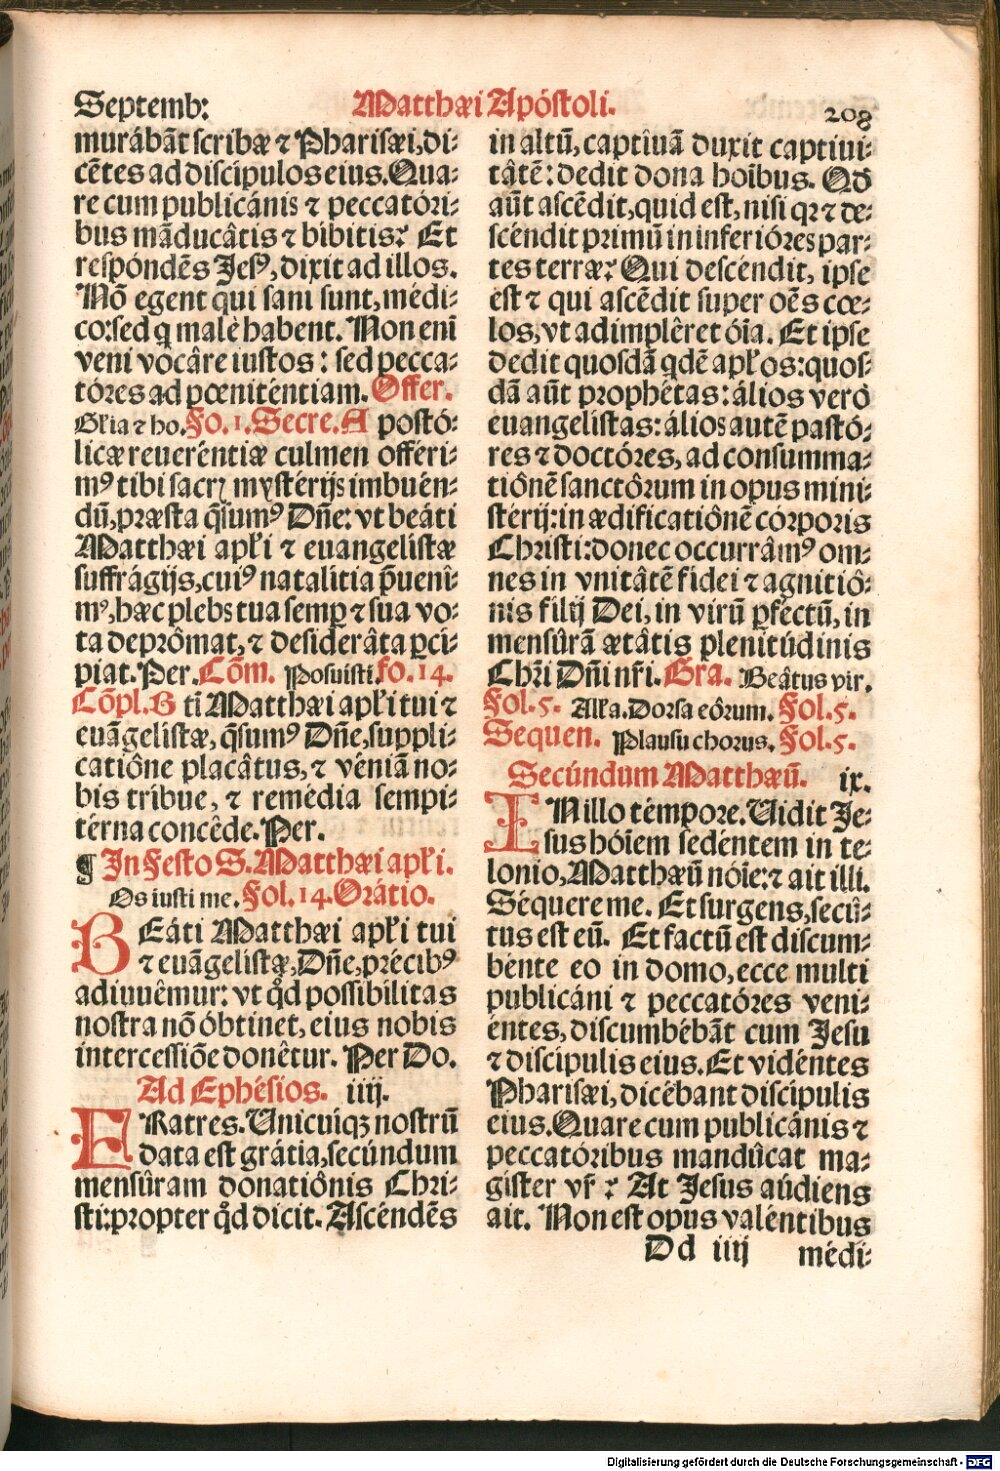 Septemb: Matthæi Apóstoli. 208
murábāt scribæ ⁊ Pharisæi, di-
cētes ad discipulos eius. Qua-
re cum publicánis ⁊ peccatóri-
bus mādúcâtis ⁊ bíbitis? Et
respóndēs Jesꝰ, dixit ad illos.
Nō egent qui sani sunt, médi-
co: sed q̨ malè habent. Non enī
veni vocâre iustos: sed pecca-
tóres ad pœniténtiam. Offer.
Gľia ⁊ ho. Fo. 1. Secre. A postó-
licæ reueréntiæ culmen offéri-
mꝰ tibi sacrꝭ mystérijs imbuén-
dū, præsta q̄sumꝰ Dñe: vt beáti
Matthæi apľi ⁊ euangelistæ
suffrágijs, cuiꝰ natalitia p̄uení-
mꝰ, hæc plebs tua semꝑ ⁊ sua vo-
ta deprômat, ⁊ desiderâta ꝑcí-
piat. Per. Cōm. Posuisti. fo. 14.
Cōpl. B tī Matthæi apľi tui ⁊
euāgelistæ, q̄sumꝰ Dñe, suppli-
catiône placâtus, ⁊ véniā no-
bis tríbue, ⁊ remédia sempi-
térna concêde. Per.
¶ In Festo S. Matthæi apľi.
Os iusti me. Fol. 14. Orátio.
BEáti Matthæi apľi tui
⁊ euāgelistæ, Dñe, précibꝰ
adiuuêmur: vt qd̄ possibílitas
nostra nō óbtinet, eius nobis
intercessiōe donêtur. Per Do.
Ad Ephésios. iiij.
FRatres. Unicuiqꝫ nostrū
data est grátia, secúndum
mensûram donatiônis Chri-
sti: propter qd̄ dicit. Ascéndēs
in altū, captíuā duxit captiui-
tâtē: dedit dona hoībus. Qd̄
aūt ascēdit, quid est, nisi qꝛ ⁊ de-
scéndit primū in inferióres par-
tes terræ? Qui descéndit, ipse
est ⁊ qui ascēdit super oēs cœ-
los, vt adimplêret óīa. Et ipse
dedit quosdā qdē apľos: quos-
dā aūt prophétas: álios verò
euangelístas: álios autē pastó-
res ⁊ doctóres, ad consumma-
tiônē sanctôrum in opus mini-
stérij: in ædificatiônē córporis
Christi: donec occurrâmꝰ om-
nes in vnitâtē fídei ⁊ agnitiô-
nis fílij Dei, in virū ꝑfectū, in
mensûrā ætâtis plenitúdinis
Chrī Dñi nr̄i. Gra. Beâtus vir.
Fol. 5. Alľa. Dorsa eôrum. Fol. 5.
Sequen. Plausu chorus. Fol. 5.
Secúndum Matthæū. ix.
IN illo témpore. Uidit Je-
sus hóīem sedéntem in te-
lonio, Matthæū nóīe: ⁊ ait illi.
Séquere me. Et surgens, secû-
tus est eū. Et factū est discum-
bénte eo in domo, ecce multi
publicáni ⁊ peccatóres veni-
éntes, discumbébāt cum Jesu
⁊ discípulis eius. Et vidéntes
Pharisæi, dicébant discípulis
eius. Quare cum publicánis ⁊
peccatóribus mandûcat ma-
gíster vr̄? At Jesus aúdiens
ait. Non est opus valéntibus
Dd iiij médi-
Digitalisierung gefördert durch die Deutsche Forschungsgemeinschaft - DFG